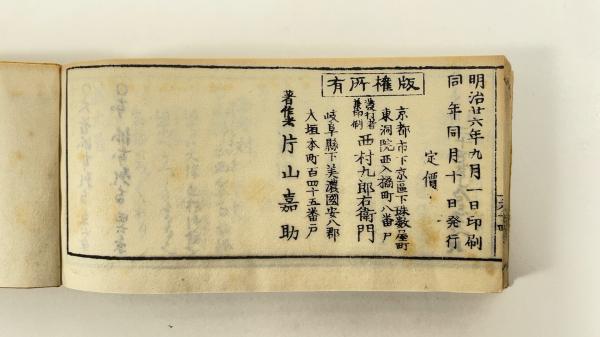 明治廿六年九月一日印刷
同年同月十日発行
定價
版權所有
京都市下京區下珠数屋町
東洞院西入橘町八番戸
發行者
兼印刷
西村九郎右衛門
岐阜縣下美濃國安八郡
大垣本町百四十五番戸
著作者 片山嘉助